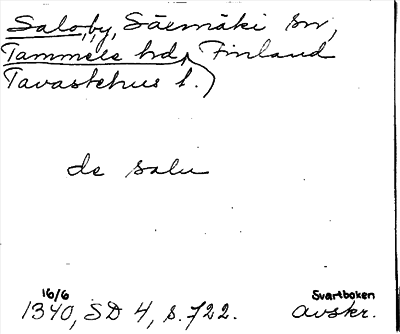 Saloby, Sääksmäki sn,
Tammela hd, Finland
Tavastehus l.)
de salu
16/6 Svartboken
1340, SD 4, s. 722. avskr.